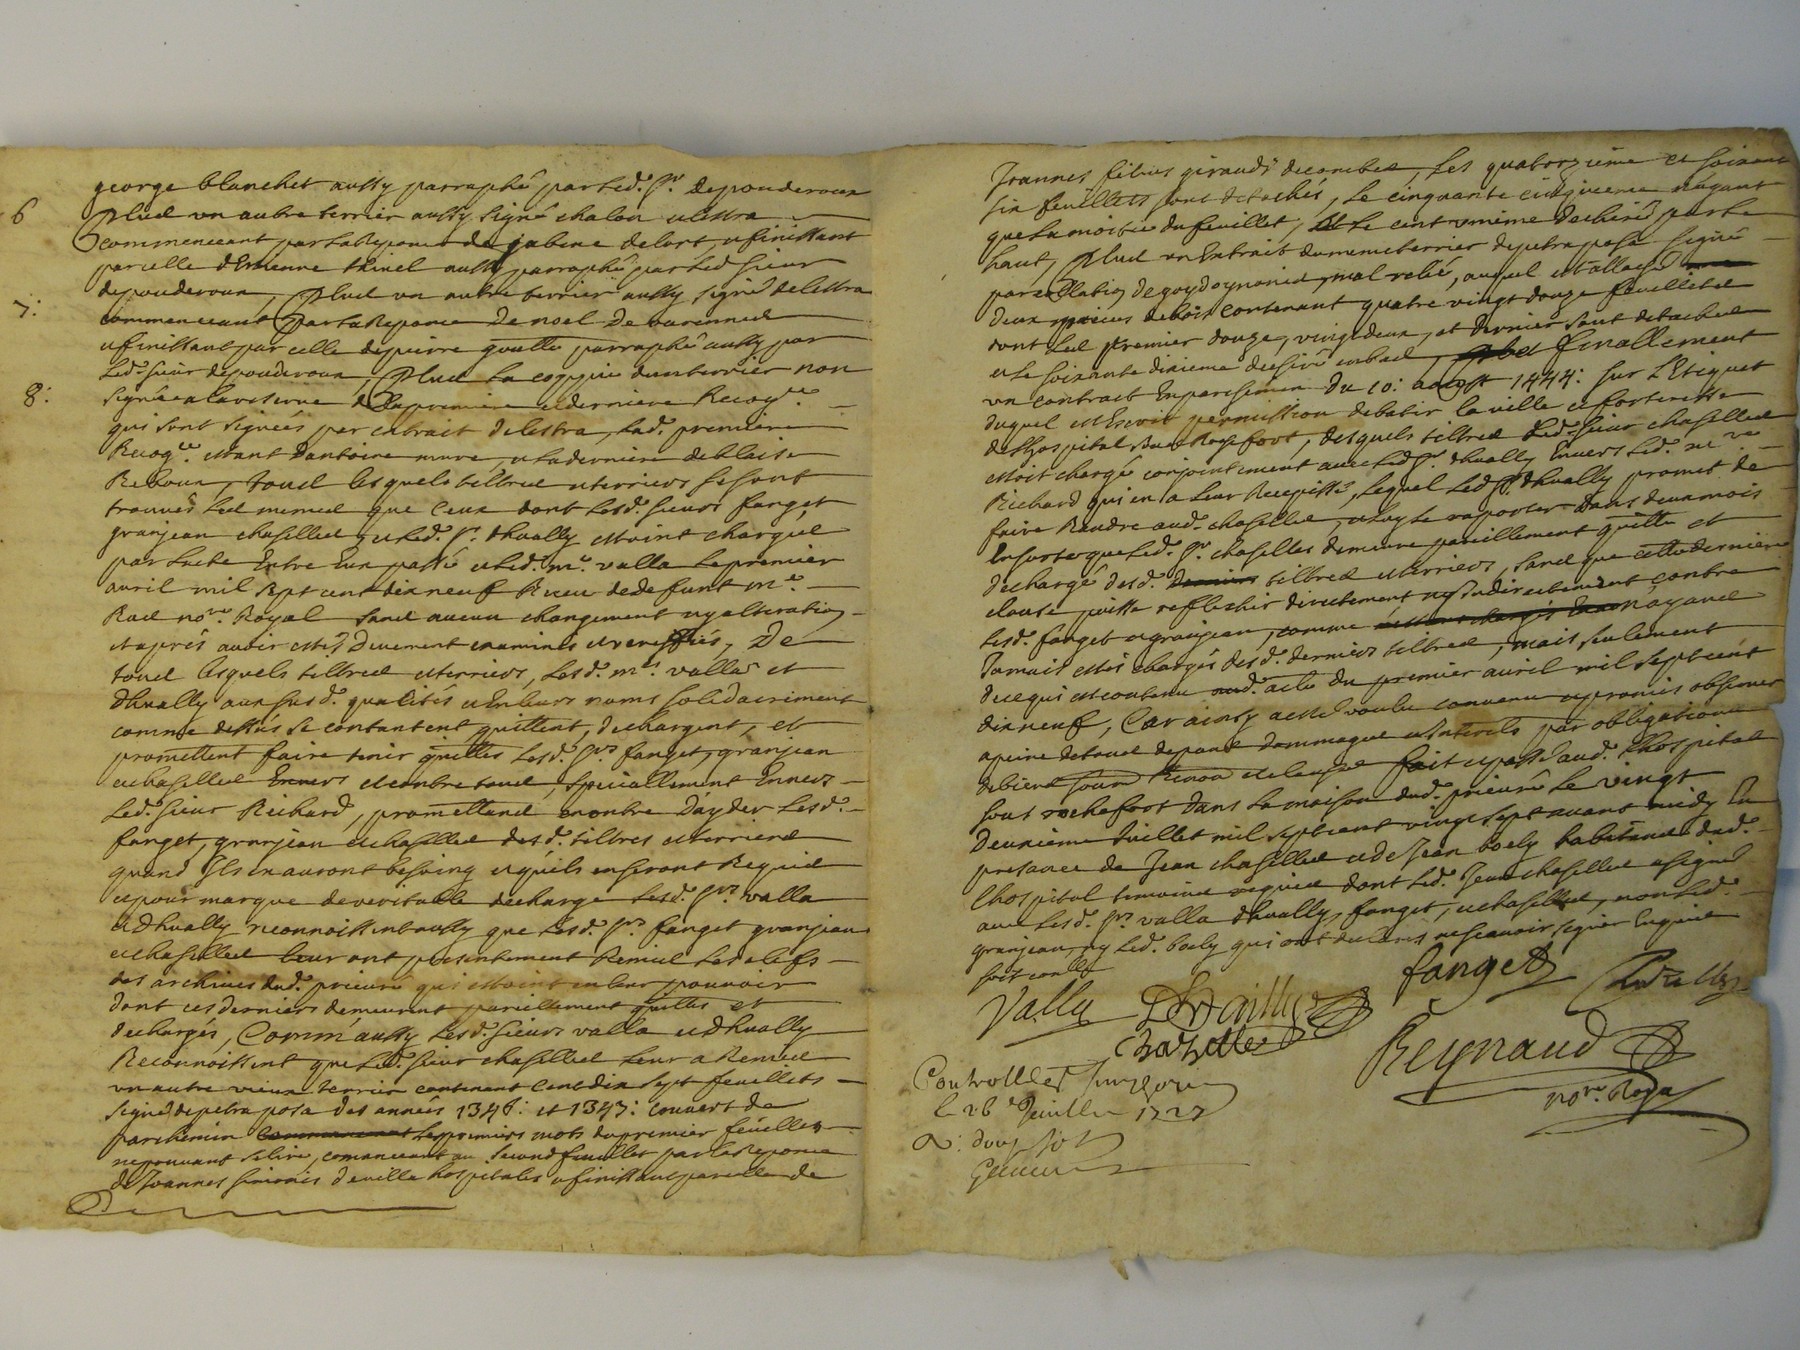 george blanchet aussy parraphé par led. sr. deponderoux
6 Plus un autre terrier aussy signé chalon delestra
commenceant par la Reponce de jabine delort, et finissant
par celle dEstienne thinel aussy parraphé par led sieur
deponderoux, Plus un autre terrier aussy signé delestra
7: commenceant par la Reponce de noel de varennes
et finissant par celle de pierre goutte, parraphé aussy par
led. sieur deponderoux, Plus la coppie dun terrier non
8: signée a la reserve de la premiere et derniere Recog.ce
qui sont signées par extrait delestra, lad. premiere
Recog.ce etant dantoine mure, et la derniere de blaise
Reboux, tous lesquels tiltres et terriers se sont
trouvés les memes que ceux dont lesd. sieurs fanget
granjean chaselles, et led. sr. dhually etoint chargés
par lacte Entre Eux passé et led. me. valla le premier
avril mil sept cent dix neuf Receu de defunt me.
Rae nore. Royal sans aucun changement ny alteration
et aprés avoir etté duement examinés et vereffiés, De
tous lesquels tiltres et terriers, lesd. mrs. valla et
dhually aux susd. qualités et en leurs noms solidairement
comme dessus se contantent, quittent, dechargent, et
promettent faire tenir quittes lesd. srs fanget, granjean
et chaselles envers et contre tous, speciallement Envers
led. sieur Richard, promettant en outre dayder lesd.
fanget, granjean et chaselles desd. tiltres et terriers
quand ils en auront besoing et quils en seront Requis
et pour marque de veritable decharge lesd. srs. valla
et dhually reconnoissent aussy que lesd. srs. fanget granjean
et chaselles leur ont presentement Remis les clefs
des archives dud. prieuré qui etoint en leur pouvoir
dont ces derniers demeurent pareillement quittes et
dechargés, Comm'aussy lesd. sieurs valla et dhually
Reconnoissent que led. sieur chaselles leur a Remis
un autre vieux terrier contenant cent dix sept feuillets
signé depetra posa des années 1346: et 1347: couvert de
parchemin les premiers mots du premier feuillet
ne pouvant se lire, comanceant au second feuillet par la Reponce
de Joannes simonis de villa hospitalis et finissant par celle de
Joannes filius giraudi decombes, Les quatorzieme et soixante
six feuillets sont detachés, le cinquante cinquieme nayant
que la moitié du feuillet, et le cent unieme dechiré par le
haut, Plus un Extrait du meme terrier depetra posa signé
par collation degoydoynonier, mal relié, auquel est attaché
deux pieces de bois contenant quatre vingt douze feuillets
dont les premier douze, vingt deux, et dernier sont detachés
et le soixante dixieme dechiré en bas, finallement
un contract En parchemin du 10: aoust 1444: sur L'Etiquet
duquel est Escrit permission debatir la ville et forteresse
de lhospital sous Rochefort, desquels tiltres led. sieur chaselles
etoit chargé conjointement avec led sr. dhually Envers led. me
Richard qui en a leur Recepissé, lequel led sr. dhually promet de
faire Rendre aud. chaselles, et luy le raporter dans deux mois
En sorte que led. sr. chaselles demeure pareillement quitte et
dechargé desd. tiltres et terriers, sans que cette derniere
clause puisse refflechir directement ny Indirectement contre
lesd. fanget et granjean, comme nayans
Jamais etté chargés desd. derniers tiltres, mais seulement
de ce qui est contenu aud. acte du premier avril mil sept cent
dix neuf, Car ainsy a etté voulu convenu et promis observer
a peine de tous depans dommages et Interets par obligation
de biens soum Renon et clauses fait et passé aud. lhospital
sous rochefort dans la maison dud. prieuré le vingt
deuxieme Juillet mil sept cent vingt sept avant midy En
presance de Jean chaselles et de Jean boely habitans dud.
lhospital temoins requis dont led. Jean chaselles a signé
avec lesd. srs valla dhually, fanget, et chaselles, non led.
granjean, ny led. boely qui ont declarés ne scavoir signer Enquis
soit conllé
Valla Dhuailly fanget Chazelles
Chazelles
Reynaud
nore. Roya
Controllé
le 26e Juillet 1727